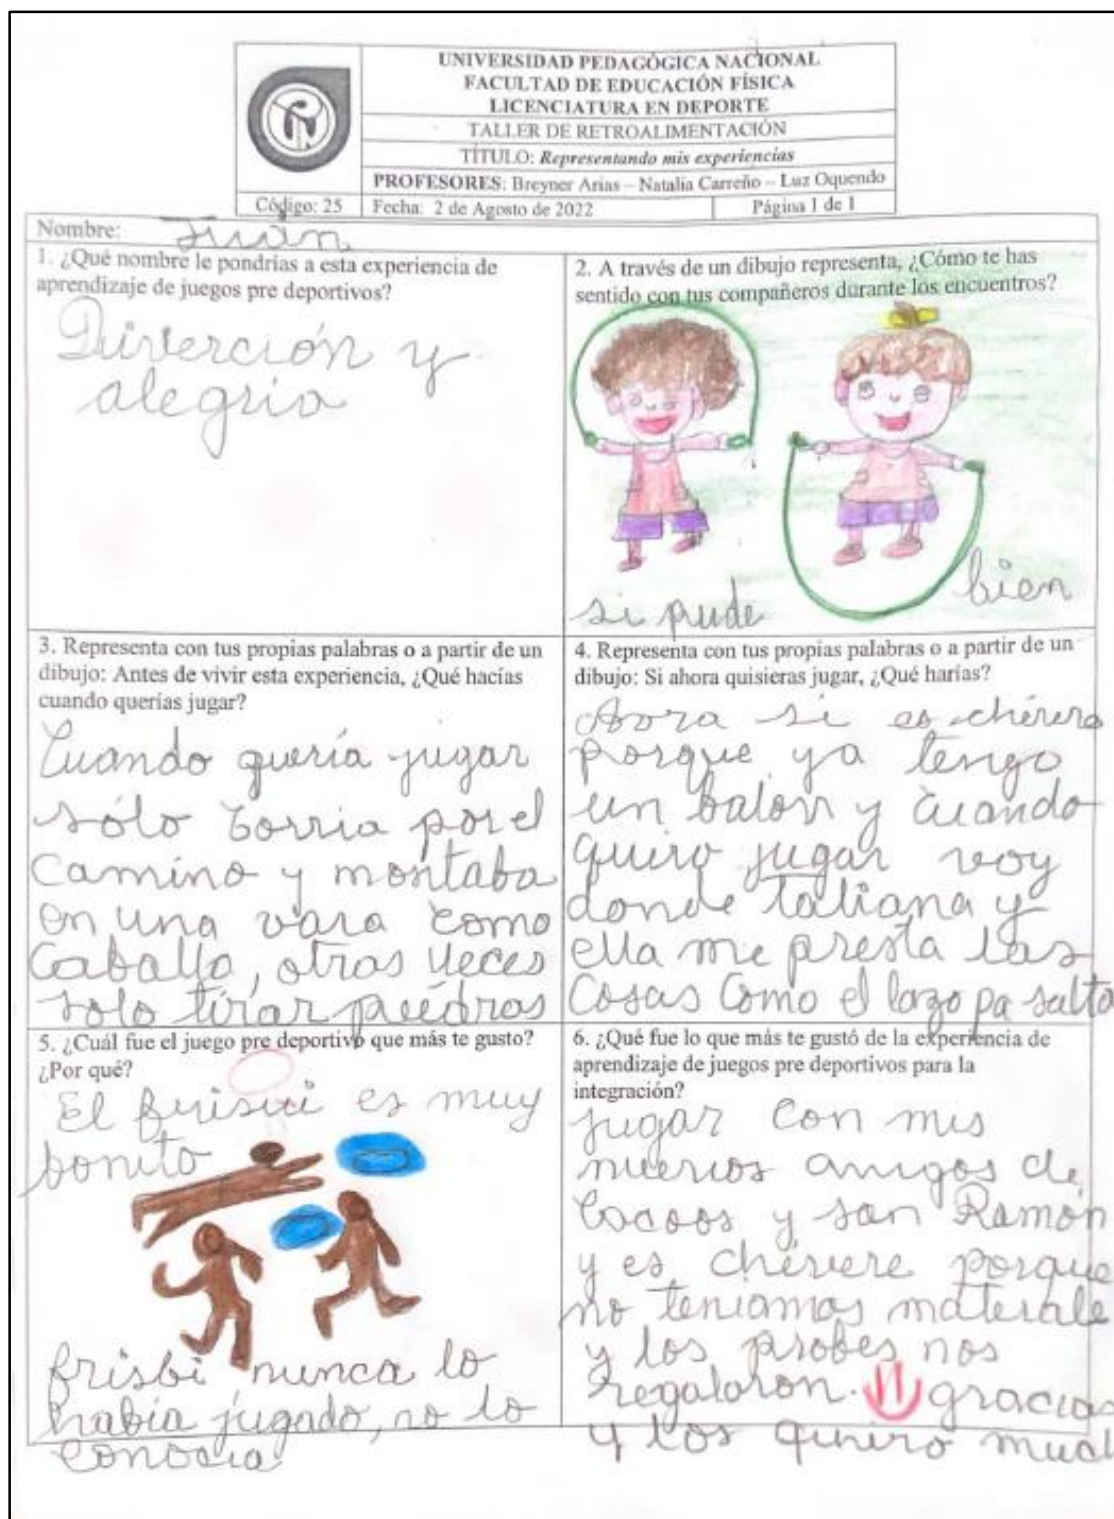 UNIVERSIDAD PEDAGÓGICA NACIONAL
FACULTAD DE EDUCACIÓN FÍSICA
LICENCIATURA EN DEPORTE
TALLER DE RETROALIMENTACIÓN
TÍTULO: Representando mis experiencias
PROFESORES: Breyner Arias – Natalia Carreño – Luz Oquendo
Código: 25 Fecha: 2 de Agosto de 2022 Página 1 de 1
Nombre: Juán
1. ¿Qué nombre le pondrías a esta experiencia de
aprendizaje de juegos pre deportivos?
Diverción y
alegria
2. A través de un dibujo representa, ¿Cómo te has
sentido con tus compañeros durante los encuentros?
si pude
bien
3. Representa con tus propias palabras o a partir de un
dibujo: Antes de vivir esta experiencia, ¿Qué hacías
cuando querías jugar?
Cuando quería jugar
sólo corria por el
camino y montaba
en una vara como
Caballo, otras veces
solo tirar piedras
4. Representa con tus propias palabras o a partir de un
dibujo: Si ahora quisieras jugar, ¿Qué harías?
Aora si es chévere
porque ya tengo
un balon y cuando
quiro jugar voy
donde tatiana y
ella me presta las
Cosas Como el lazo pa salta
5. ¿Cuál fue el juego pre deportivo que más te gusto?
¿Por qué?
El es muy
bonito
frisbi nunca lo
había jugado, no lo
conocia
6. ¿Qué fue lo que más te gustó de la experiencia de
aprendizaje de juegos pre deportivos para la
integración?
jugar con mis
nuevos amigos de
y san Ramón
y es chévere porque
no teniamos materiale
y los profes nos
regalaron. gracias
y los quiero much